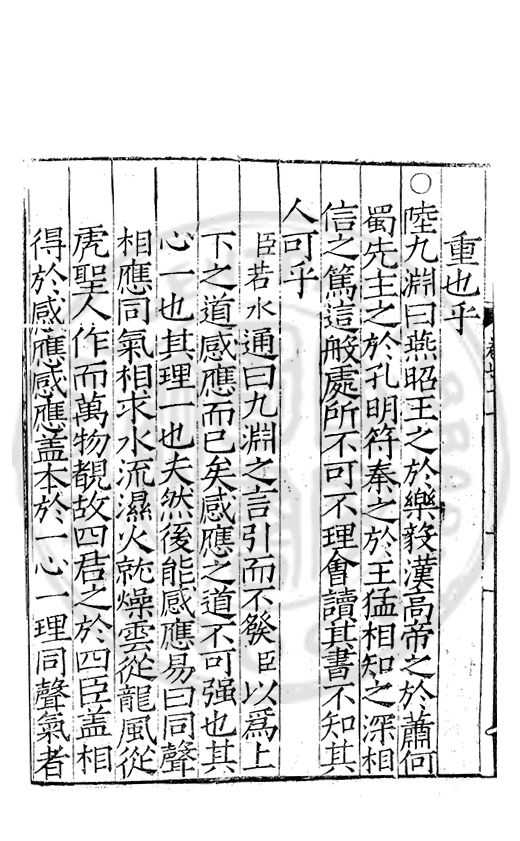 重也乎
○陸九淵曰燕昭王之於樂毅漢高帝之於蕭何
蜀先主之於孔明符秦之於王猛相知之深相
信之篤這般處所不可不理會讀其書不知其
人可乎
臣若水通曰九淵之言引而不發臣以為上
下之道感應而已矣感應之道不可强也其
心一也其理一也夫然後能感應易曰同聲
相應同氣相求水流濕火就燥雲從龍風從
虎聖人作而萬物覩故四君之於四臣盖相
得於感應感應盖本於一心一理同聲氣者